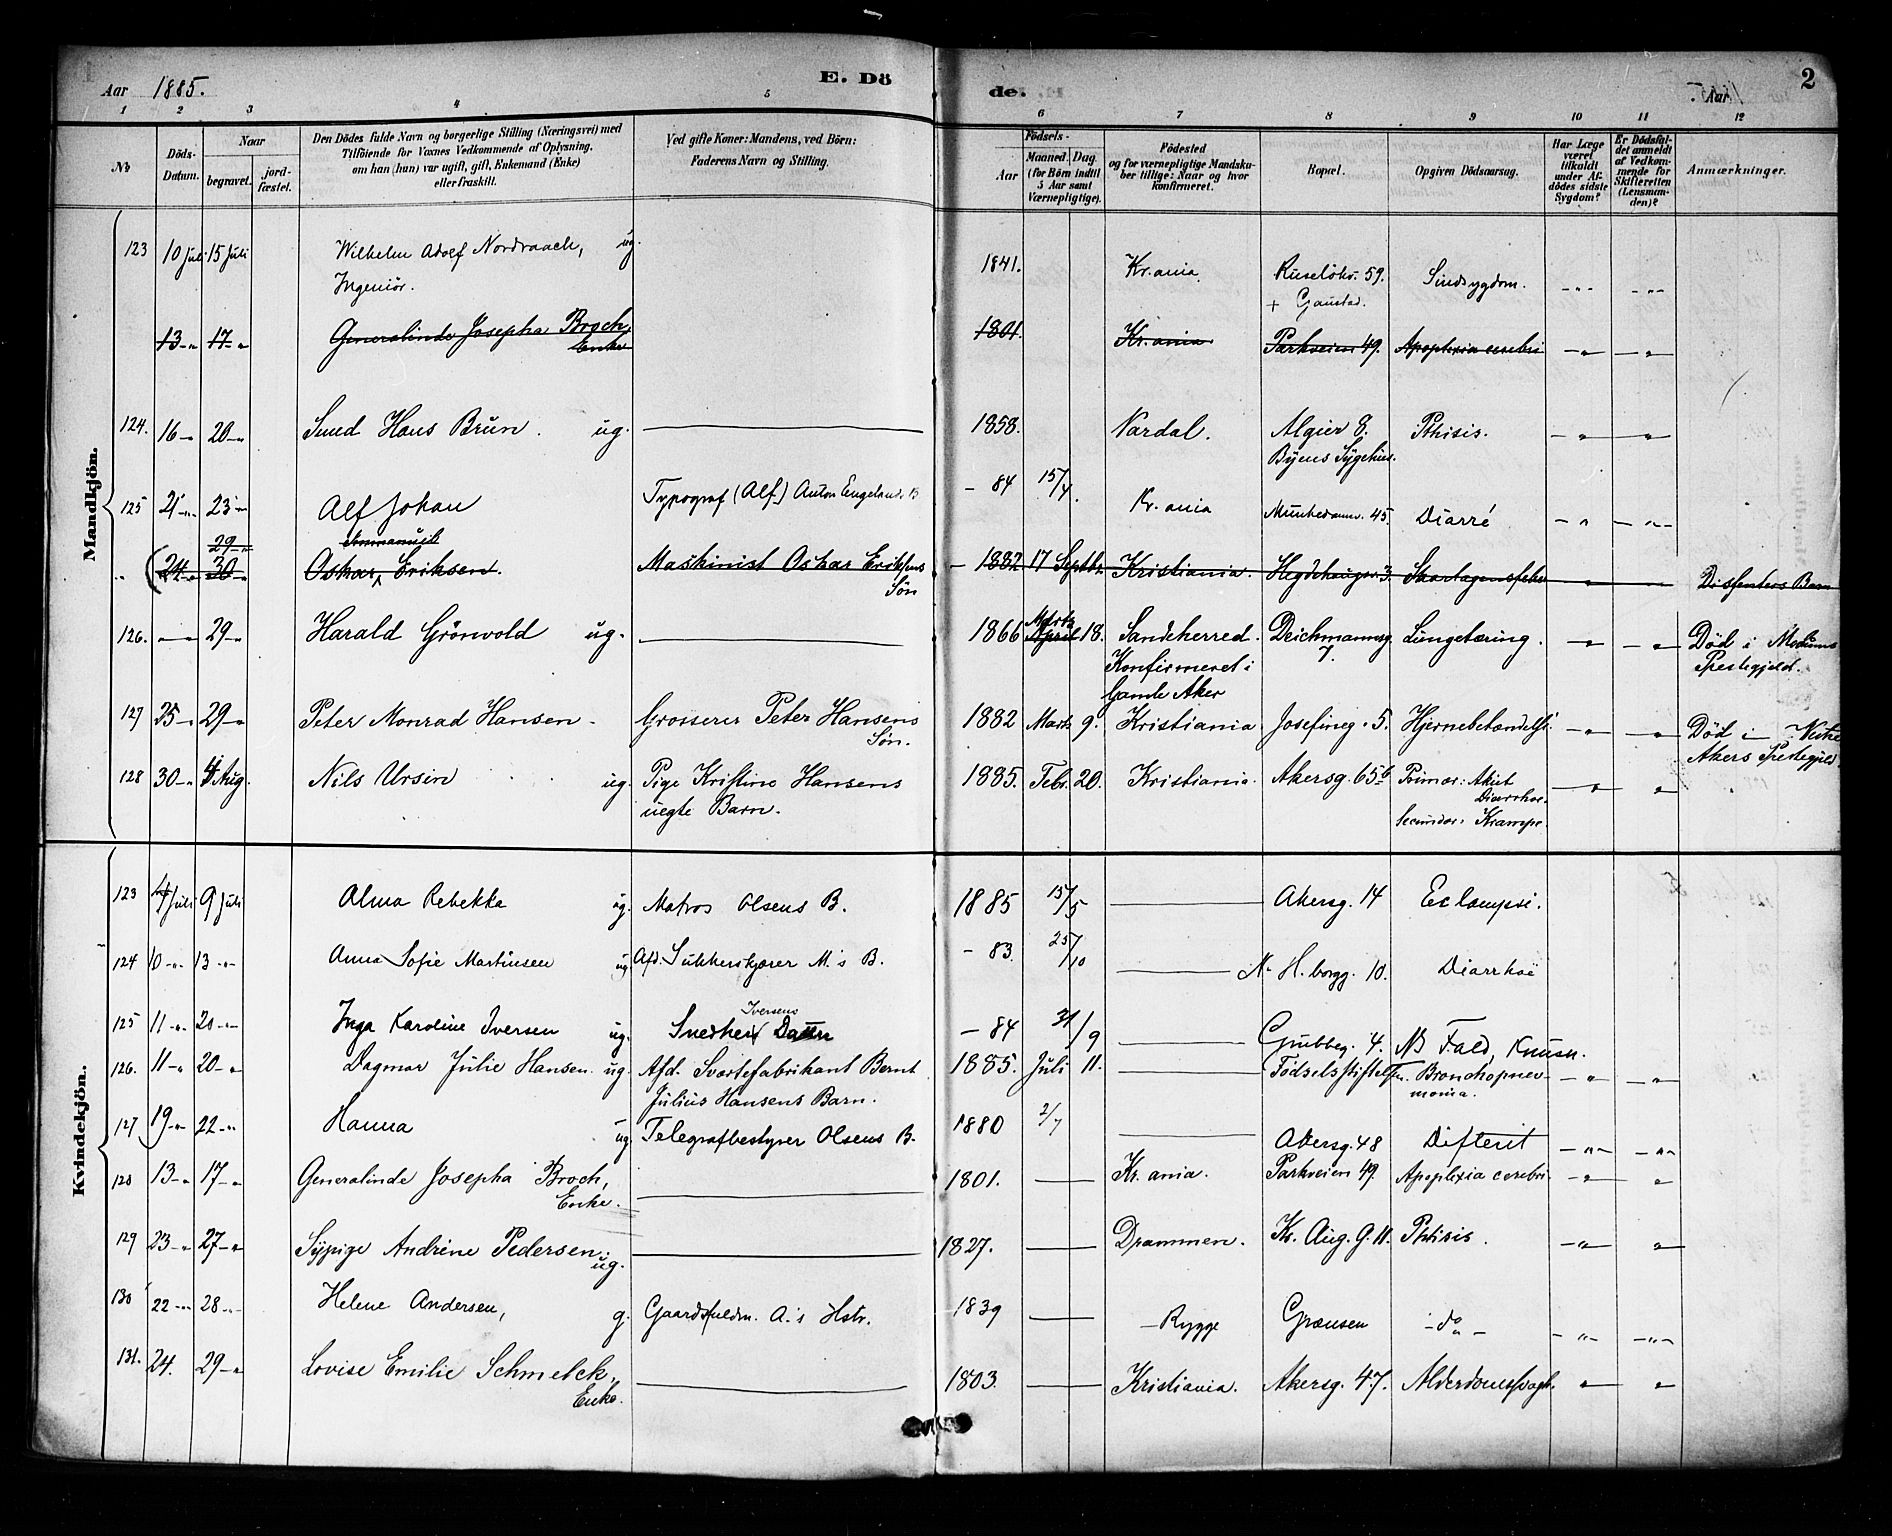 Aar 1885. E. Döde. Aar 2
1 2 3 4 5 6 7 8 9 10 11 12
No Döds-Datum. Naar begravet. jord-fæstet. Den Dödes fulde Navn og borgerlige Stilling (Næringsvei) med Tilföiende for Voxnes Vedkommende af Oplysning, om han (hun) var ugift, gift, Enkemand (Enke) eller fraskilt. Ved gifte Koner: Mandens, ved Börn: Faderens Navn og Stilling. Födsels- Aar Maaned. Dag. (for Börn indtil 5 Aar samt Værnepligtige). Födested og for værnepligtige Mandskuber tillige: Naar og hvor konfirmeret. Bopæl. Opgiven Dödsaarsag. Har Læge været tilkaldt under Afdödes sidste Sygdom? Er Dödsfaldet anmeldt af Vedkommende for Skifteretten (Lensmanden)? Anmærkninger.
Mandkjön.
123 10 Juli 15 Juli Wilhelm Adolf Nordraach, ug. 1841. Kr.ania Ruselökv. 59. Sindsygdom. -"- -"-
Ingeniör. + Gaustad.
13 -"- 17 -"- Generalinde Josepha Broch, Enke 1801. Kr.ania Parkveien 49. Apoplexia cerebri -"- -"-
124. 16 -"- 20 -"- Smed Hans Brun. ug. 1858. Vardal. Algier 8. Pthisis. -"- -"-
Byens Sygehus.
125 21 -"- 23 -"- Alf Johan Typograf (Alf) Anton Engelands B - 84 15/4. Kr.ania Munkedamv. 45. Diarré -"- -"-
29 -"- Emmanuel
" 24 -"- 30 -"- Oskar, Eriksen. Maskinist Oskar Eriksens Søn - 1882 17 Septbr. Kristiania. Hegdehaugsv. 3. Skarlagensfeber Dissenters Barn
126. -"- 29 -"- Harald Grönvold ug. 1866 April Marts 18. Sandeherred. Deichmannsg. 7. Lungetæring. -"- -"- Död i Modums Prestegjeld.
Konfirmeret i
Gamle Aker
127 25 -"- 29 -"- Peter Monrad Hansen - Grosserer Peter Hansens Søn. 1882 Marts 9. Kristiania Josefineg. 5. Hjernebetændelse. -"- -"- Død i Vestre Akers Prestegjeld.
128 30 -"- 4 Aug. Nils Ursin ug. Pige Kristine Hansens 1885. Febr. 20. Kristiania. Akersg. 65 b Primær: Akut Diarrhoe. -"- "
uegte Barn. Secundær: Krampe.
Kvindekjön.
123 4 Juli 9 Juli Alma Rebekka ug. Matros Olsens B. 1885 15/5 Akersg. 14 Eclampsi.
124 10 -"- 13 -"- Anna Sofie Martinsen ug. Afd. Sukkerskjører M.s B. - 83. 25/10 N. H.borgg. 10. Diarrhoë
125 11 -"- 20 -"- Inga Karoline Iversen ug. Snedker Iversens Datter - 84 31/9 Grubbeg. 4. NB Fald, Knusn.
126. 11 -"- 20 -"- Dagmar Julie Hansen. ug. Afd. Svartefabrikant Bernt 1885. Juli 11. Fødselsstiftelsen. Bronchopnevmonia. -"- -"-
Julius Hansens Barn.
127 19 -"- 22 -"- Hanna ug. Telegrafbestyrer Olsens B. 1880 2/7 Akersg. 48 Difterit -"- -"-
128 13 -"- 17 -"- Generalinde Josepha Broch, 1801. Kr.ania. Parkveien 49. Apoplexia cerebri. -"- "
Enke.
129 23 -"- 27 -"- Sypige Andrine Pedersen, ug. 1827. Drammen. Kr. Aug. G. 11. Phtisis. -"- "
130 22 -"- 28 -"- Helene Andersen, g. Gaardsfuldm. A.s Hstr. 1839 Rygge Grænsen - do - -"- -"-
131. 24. 29 -"- Lovise Emilie Schmelck, 1803. Kristiania. Akersg. 47. Alderdomssvagh. " "
Enke.